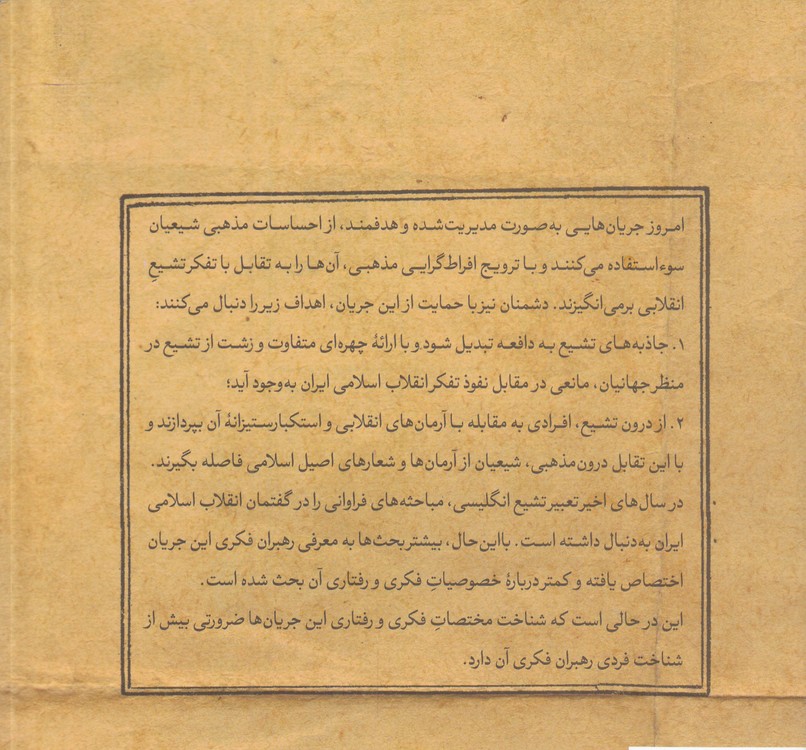 امروز جریان‌هایی به‌صورت مدیریت‌شده و هدفمند، از احساسات مذهبی شیعیان
سوءاستفاده می‌کنند و با ترویج افراط‌گرایی مذهبی، آن‌ها را به تقابل با تفکر تشیعِ
انقلابی برمی‌انگیزند. دشمنان نیز با حمایت از این جریان، اهداف زیر را دنبال می‌کنند:
۱. جاذبه‌های تشیع به دافعه تبدیل شود و با ارائۀ چهره‌ای متفاوت و زشت از تشیع در
منظر جهانیان، مانعی در مقابل نفوذ تفکر انقلاب اسلامی ایران به‌وجود آید؛
۲. از درون تشیع، افرادی به مقابله با آرمان‌های انقلابی و استکبارستیزانۀ آن بپردازند و
با این تقابل درون‌مذهبی، شیعیان از آرمان‌ها و شعارهای اصیل اسلامی فاصله بگیرند.
در سال‌های اخیر تعبیر تشیع انگلیسی، مباحثه‌های فراوانی را در گفتمان انقلاب اسلامی
ایران به‌دنبال داشته است. بااین‌حال، بیشتر بحث‌ها به معرفی رهبران فکری این جریان
اختصاص یافته و کمتر دربارۀ خصوصیاتِ فکری و رفتاری آن بحث شده است.
این در حالی است که شناخت مختصاتِ فکری و رفتاری این جریان‌ها ضرورتی بیش از
شناخت فردی رهبران فکری آن دارد.